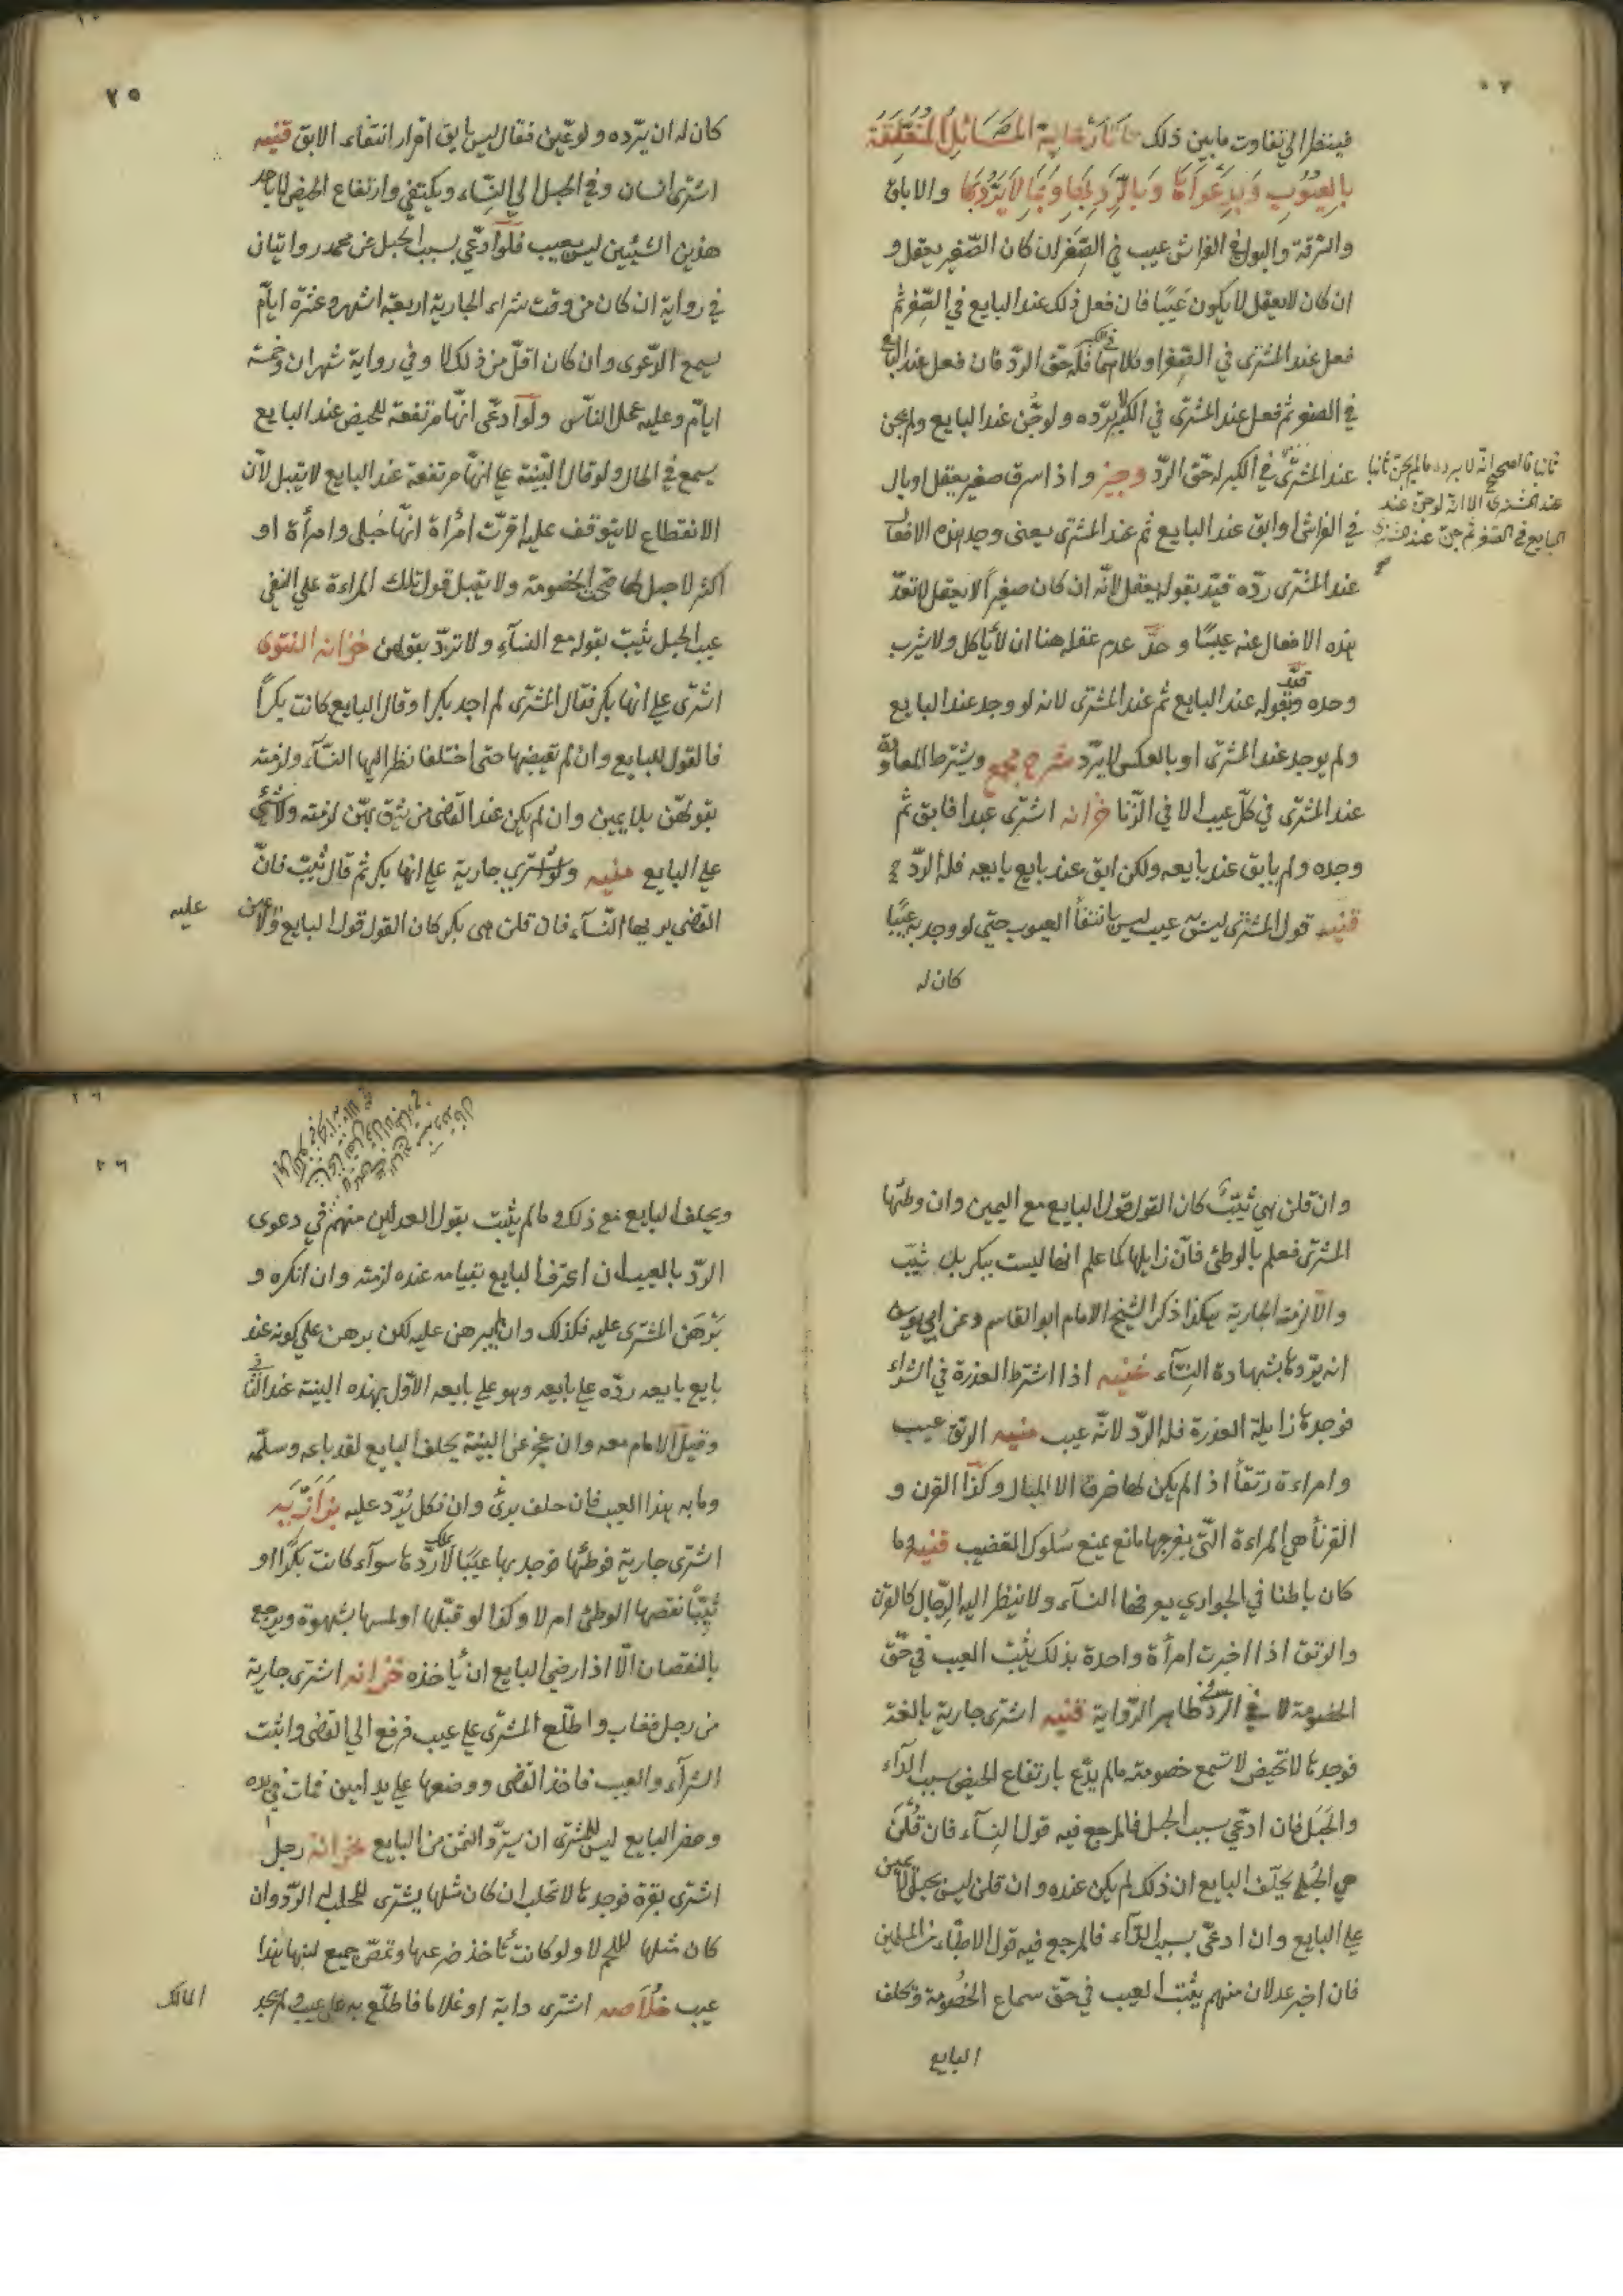 فينظر الى تفاوت ما بين ذلك تاتارخانية المسائل المتعلقة
بالعيوب وبدعواها وبالرد بها وبما لا يرد بها والاباق
والسرقة والبول في الفراش عيب في الصغر ان كان الصغير يعقل و
ان كان لا يعقل لا يكون عيبا فان فعل ذلك عند البايع في الصغر ثم
فعل عند المشترى في الصغر او كلاهما في الكبر فله حق الرد فان فعل عند البايع
في الصغر ثم فعل عند المشترى في الكبر لا يرده ولو جن عند البايع ولم يجن
عند المشترى في الكبر له حق الرد وجيز واذا سرق صغير يعقل او بال
ثانيا فالصحيح انه لا يرده ما لم يجن ثانيا
عند المشترى الا انه لو جن عند
البايع في الصغر ثم جن عند المشترى
في الفراش او ابق عند البايع ثم عند المشترى يعنى وجد هذه الافعال
عند المشترى رده قيد بقوله يعقل لانه ان كان صغيرا لا يعقل لا تعد
هذه الافعال عنه عيبا و حد عدم عقله هنا ان لا ياكل ولا يشرب
وحده وقيد بقوله عند البايع ثم عند المشترى لانه لو وجد عند البايع
ولم يوجد عند المشترى او بالعكس لا يرد شرح مجمع ويشترط المعاودة
عند المشترى في كل عيب الا في الزنا خزانه اشترى عبدا فابق ثم
وجده ولم يابق عند بايعه ولكن ابق عند بايع بايعه فله الرد
قنيه قول المشترى ليس به عيب ليس بانتفا العيوب حتى لو وجد به عيبا
كان له
٢٥
كان له ان يرده ولو عين فقال ليس بابق اقرار انتفاء الابق قنيه
اشترى انسان وفي الحبل الى النساء ويكتفى وارتفاع الحيض لا باحد
هذين الشيئين ليس بعيب فلو ادعى بسبب الحبل عن محمد روايتان
في رواية ان كان من وقت شراء الجارية اربعة اشهر وعشرة ايام
يسمع الدعوى وان كان اقل من ذلك لا وفي رواية شهران وخمسة
ايام وعليه عمل الناس ولو ادعى انها مرتفعة للحيض عند البايع
يسمع في الحال ولو قال البينة على انها مرتفعة عند البايع لا يقبل لان
الانقطاع لا يتوقف عليه اقرت امراة انها حبلى وامرأة او
اكثر لا حبل لها صحت الخصومة ولا يقبل قول تلك المراءة على النفى
عيب الحبل يثبت بقوله مع النساء ولا ترد بقولهن خزانه الفتوى
اشترى على انها بكر فقال المشترى لم اجد بكرا وقال البايع كانت بكرا
فالقول للبايع وان لم تقبضها حتى اختلفا نظر اليها النساء ولزمته
بقولهن بلا يمين وان لم يكن عند القاضى من يثق بهن لزمته ولا شئ
على البايع منيه ولو اشترى جارية على انها بكر ثم قال ثيب فان
القاضى يريها النساء فان قلن هي بكر كان القول قول البايع ولا يمين
عليه
وان قلن هي ثيب كان القول قول البايع مع اليمين وان وطئها
المشترى فعلم بالوطئ فان زايلها كما علم انها ليست ببكر بل ثيب
والا لزمته الجارية هكذا ذكر الشيخ الامام ابو القاسم وعن ابي يوسف
انه يردها بشهادة النساء غنيه اذا اشترط العذرة في الشراء
فوجدها زايلة العذرة فله الرد لانه عيب منيه الرتق عيب
وامراءة رتقا اذا لم يكن لها خرق الا المبال وكذا القرن و
القرنأ هي المراءة التى بفرجها مانع يمنع سلوك القضيب قنيه وما
كان باطنا في الجوارى يعرفها النساء ولا ينظر اليه الرجال كالقرن
والرتق اذا اخبرت امرأة واحدة بذلك يثبت العيب في حق
الخصومة لا في الرد في ظاهر الرواية قنيه اشترى جارية بالغة
فوجدها لا تحيض لا تسمع خصومته مالم يدع بارتفاع الحيض بسبب الداء
والحبل فان ادعى بسبب الحبل فالمرجع فيه قول النساء فان قلن
هي الحبلى يحلف البايع ان ذلك لم يكن عنده وان قلن ليس بحبلى لا يمين
على البايع وان ادعى بسبب الداء فالمرجع فيه قول الاطباء من المسلمين
فان اخبر عدلان منهم يثبت العيب في حق سماع الخصومة وتحلف
البايع
٢٦
٢٦
ويحلف البايع مع ذلك و مالم يثبت بقول العدلين منهم في دعوى
الرد بالعيب ان اعترف البايع بقيامه عنده لزمته وان انكره و
برهن المشترى عليه فكذلك وان لم يبرهن عليه لكن برهن على كونه عند
بايع بايعه رده على بايعه وهو على بايعه الاول بهذه البينة عند الثانى
وقيل الامام معه وان عجز عن البينة يحلف البايع لقد باعه وسلمه
وما به هذا العيب فان حلف برئ وان نكل يرد عليه بزازيه
اشترى جارية فوطئها فوجد بها عيبا لا يملك ردها سواء كانت بكرا او
ثيبا نقصها الوطئ ام لا وكذا لو قبلها او لمسها بشهوة ويرجع
بالنقصان الا اذا رضى البايع ان ياخذه خزانه اشترى جارية
من رجل فغاب واطلع المشترى على عيب فرفع الى القضى واثبت
الشراء والعيب فاخذ القضى ووضعها على يد امين فمات في يده
وحضر البايع ليس للمشترى ان يسترد الثمن من البايع خزانه رجل
اشترى بقرة فوجدها لا تحلب ان كان مثلها يشترى للحلب له الرد وان
كان مثلها للحم لا ولو كانت تاخذ ضرعها وتمص جميع لبنها فهذا
عيب خلاصه اشترى دابة او غلاما فاطلع به على عيب ولم يجد
المالك